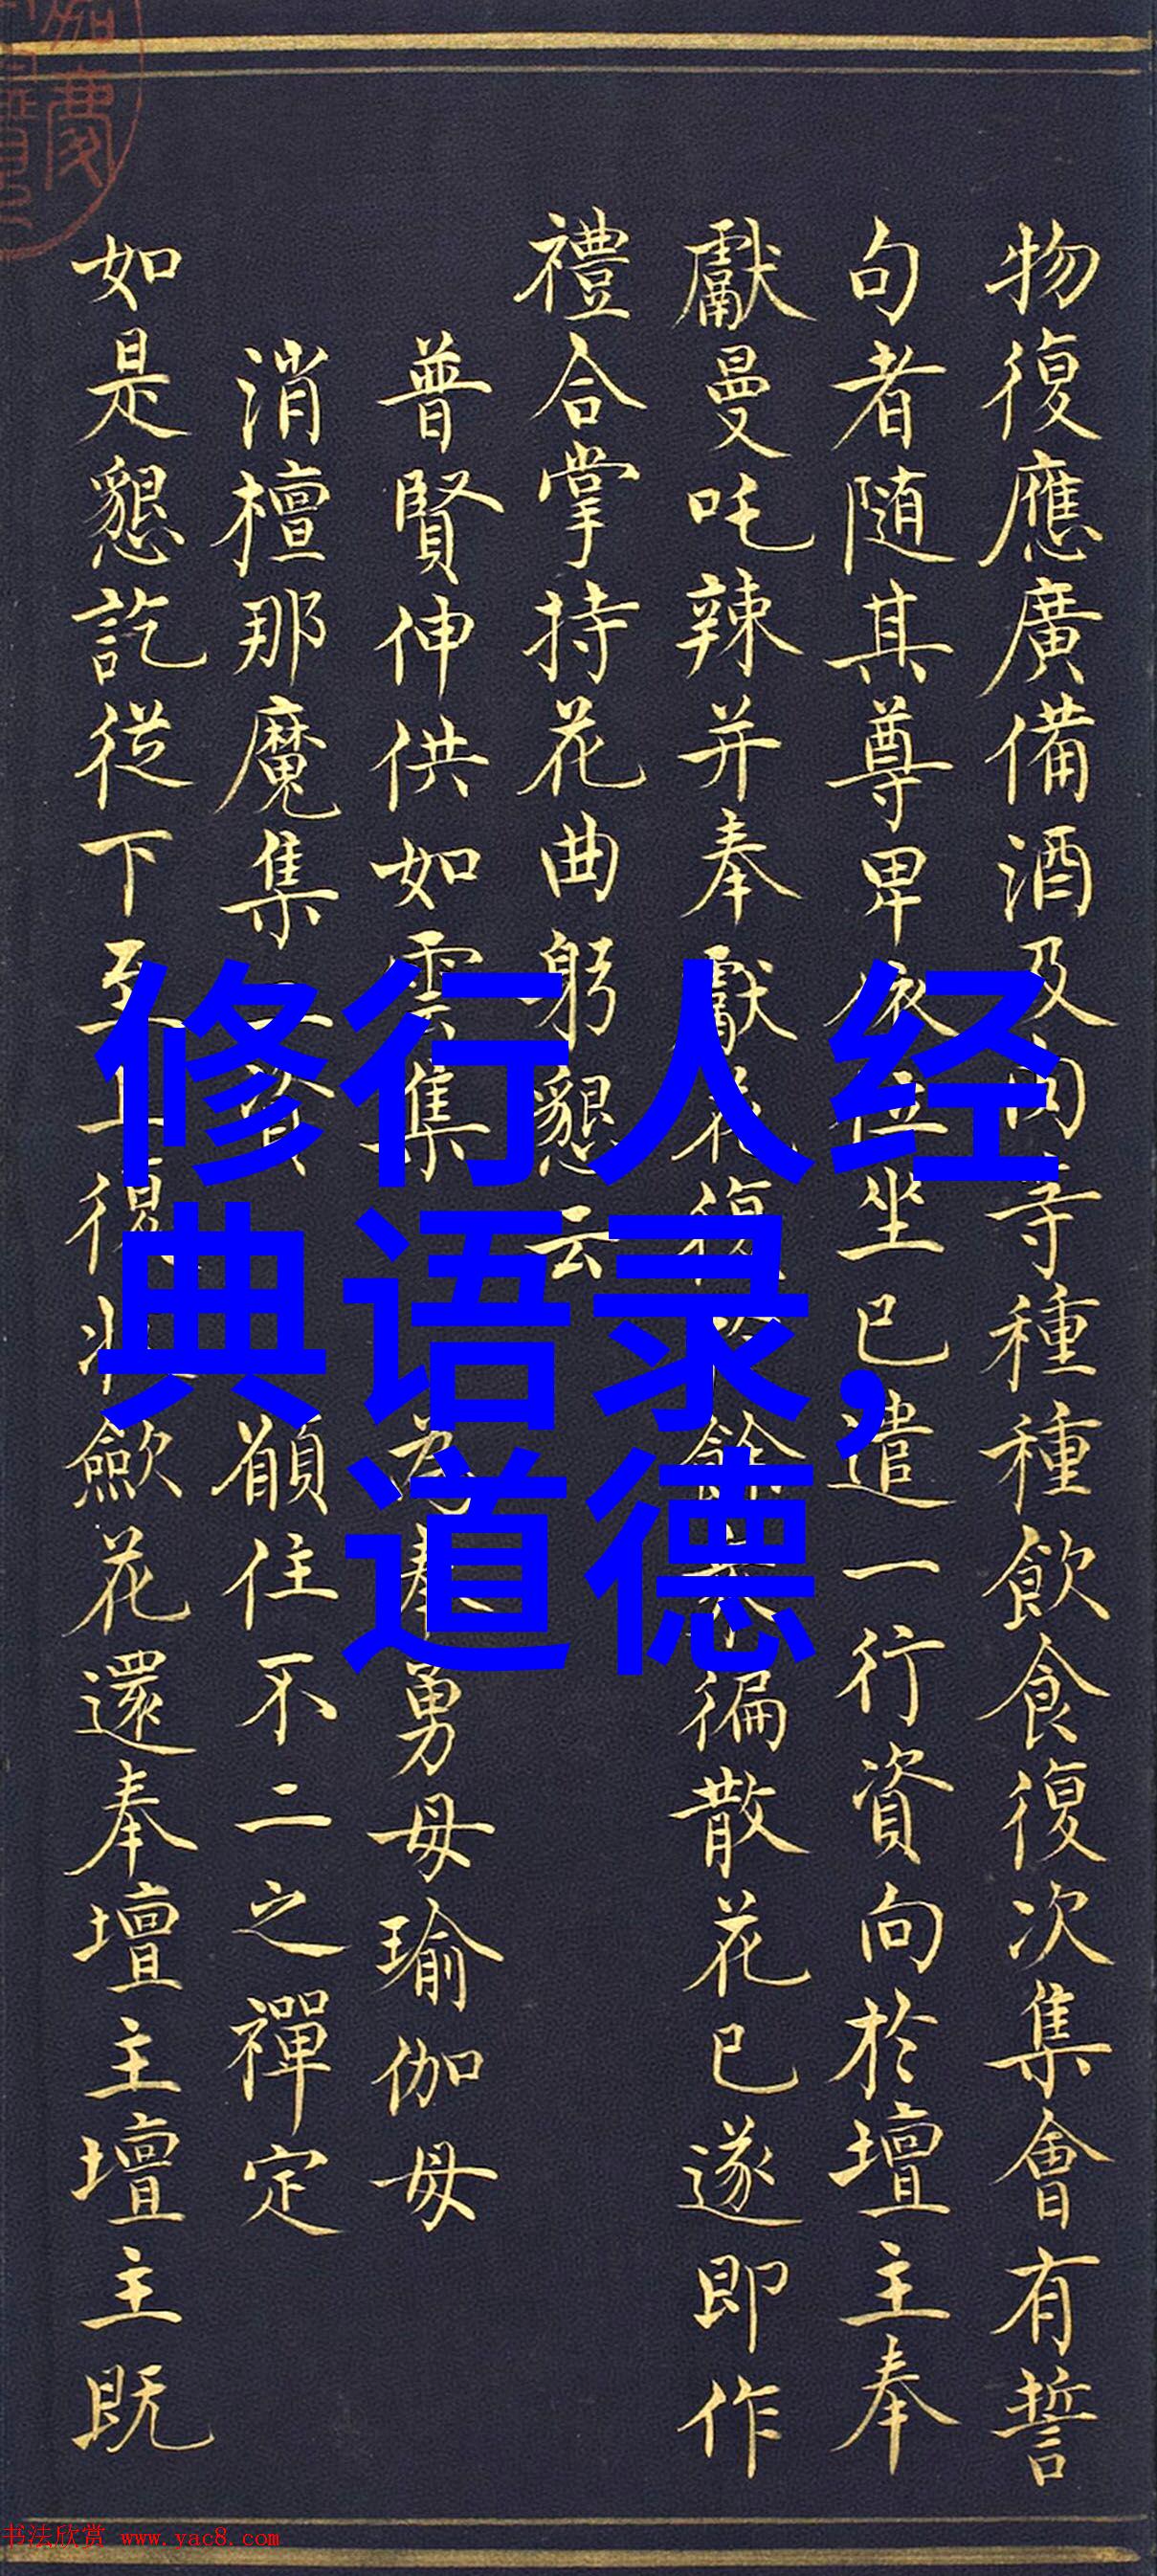 物復應廣備酒及肉等種種飲食復次集會有誓
句者随其尊卑依位坐已遣一行資向於壇主奉
獻曼吒辣并奉獻花復餘徧散花已遂即作
禮合掌持花曲躬懇云
普賢伸供如雲集 為奉勇母瑜伽母
消檀那魔集資 願住不二之禪定
如是懇訖從下至上復歛花還奉壇主壇主既
修行人经
典语录,
道德
书法欣赏 www.yac8.com